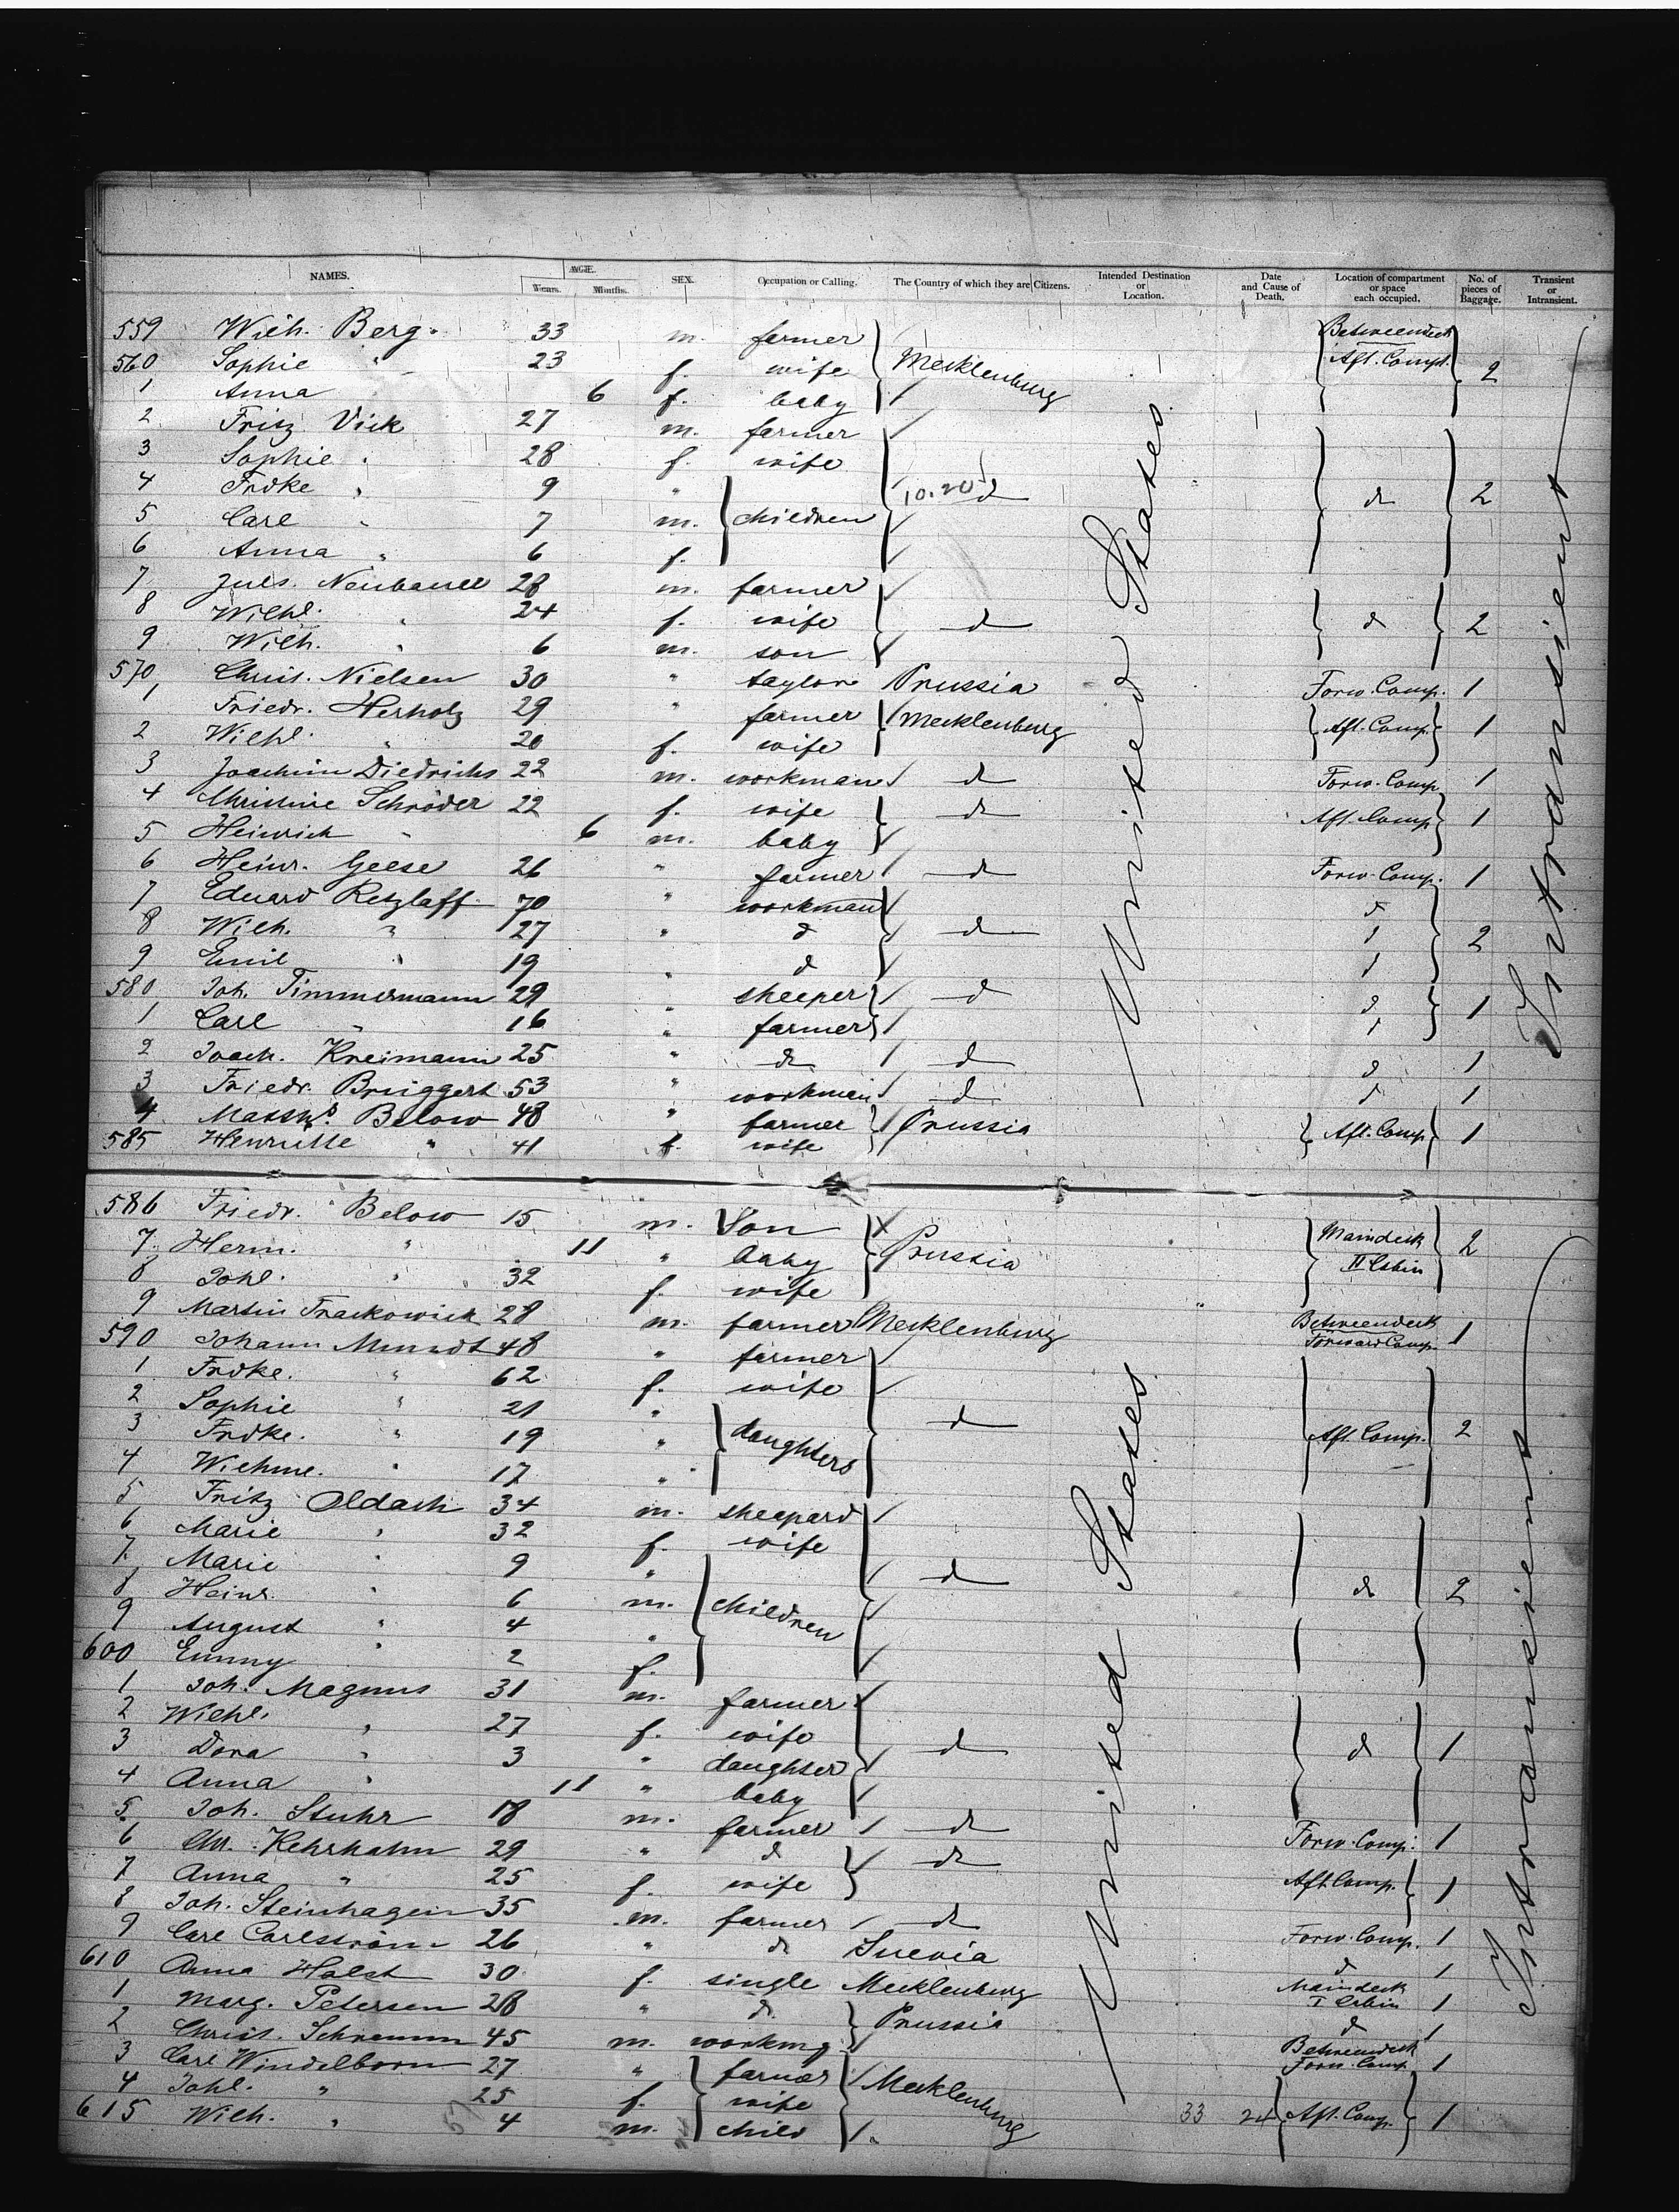 NAMES. AGE. Years. Months. SEX. Occupation or Calling. The Country of which they are Citizens. Intended Destination or Location. Date and Cause of Death. Location of compartment or space each occupied. No. of pieces of Baggage. Transient or Intransient.
559 Wilh. Berg. 33 m. farmer Betweendeck
560 Sophie " 23 f. wife Mecklenburg Aft. Compt. 2
1 Anna 6 f. baby
2 Fritz Vick 27 m. farmer
3 Sophie " 28 f. wife
4 Frdke " 9 " d d 2
5 Carl " 7 m. children
6 Anna " 6 f.
7 Juls. Neubauer 28 m. farmer
8 Wilhl. " 24 f. wife d d 2
9 Wilh. " 6 m. son
570 Christ. Nielsen 30 " taylor Prussia Forw. Comp. 1
1 Friedr. Herholz 29 " farmer Mecklenburg Aft. Comp. 1
2 Wilhl. " 20 f. wife
3 Joachim Diedrichs 22 m. workman d Forw. Comp 1
4 Christine Schröder 22 f. wife d Aft. Comp 1
5 Heinrich " 6 m. baby
6 Heinr. Geese 26 " farmer d Forw. Comp. 1
7 Eduard Retzlaff 70 " workman d
8 Wilh. " 27 " d d d 2
9 Emil " 19 " d d
580 Joh. Timmermann 29 " sheeper d d 1
1 Carl " 16 " farmer d
2 Joach. Kreimann 25 " d d d 1
3 Friedr. Bruggert 53 " workman d d 1
4 Matths. Below 48 " farmer Prussia Aft. Comp 1
585 Henriette " 41 f. wife
United States
Intransient
586 Friedr. Below 15 m. Son Maindeck 2
7 Herm. " 11 " baby Prussia II Cabin
8 Johl. " 32 f. wife
9 Martin Trackowick 28 m. farmer Mecklenburg Betweendeck Forward Comp. 1
590 Johann Mundt 48 " farmer
1 Frdke. " 62 f. wife
2 Sophie " 21 " d
3 Frdke. " 19 " daughters Aft. Comp. 2
4 Wilhme. " 17 "
5 Fritz Oldach 34 m. sheapard
6 Marie " 32 f. wife
7 Marie " 9 " d
8 Heinr. " 6 m. children d 2
9 August " 4 "
600 Emmy " 2 f.
1 Joh. Magnus 31 m. farmer
2 Wilhl. " 27 f. wife
3 Dora " 3 " daughter d d 1
4 Anna " 11 " baby
5 Joh. Stuhr 18 m. farmer d Forw. Comp. 1
6 Chr. Kehrhahn 29 " d d
7 Anna " 25 f. wife Aft Comp. 1
8 Joh. Steinhagen 35 m. farmer d Forw. Comp. 1
9 Carl Carlström 26 " d Suevia d 1
610 Anna Holst 30 f. single Mecklenburg Maindeck I Cabin 1
1 Marg. Petersen 28 " d. Prussia d 1
2 Christ. Schramm 45 m. workmg. Betweendeck Forw. Comp 1
3 Carl Windelborn 27 " farmer Mecklenburg
4 Johl. " 25 f. wife
615 Wilh. " 4 m. child 33 24 Aft. Comp. 1
United States
Intransient